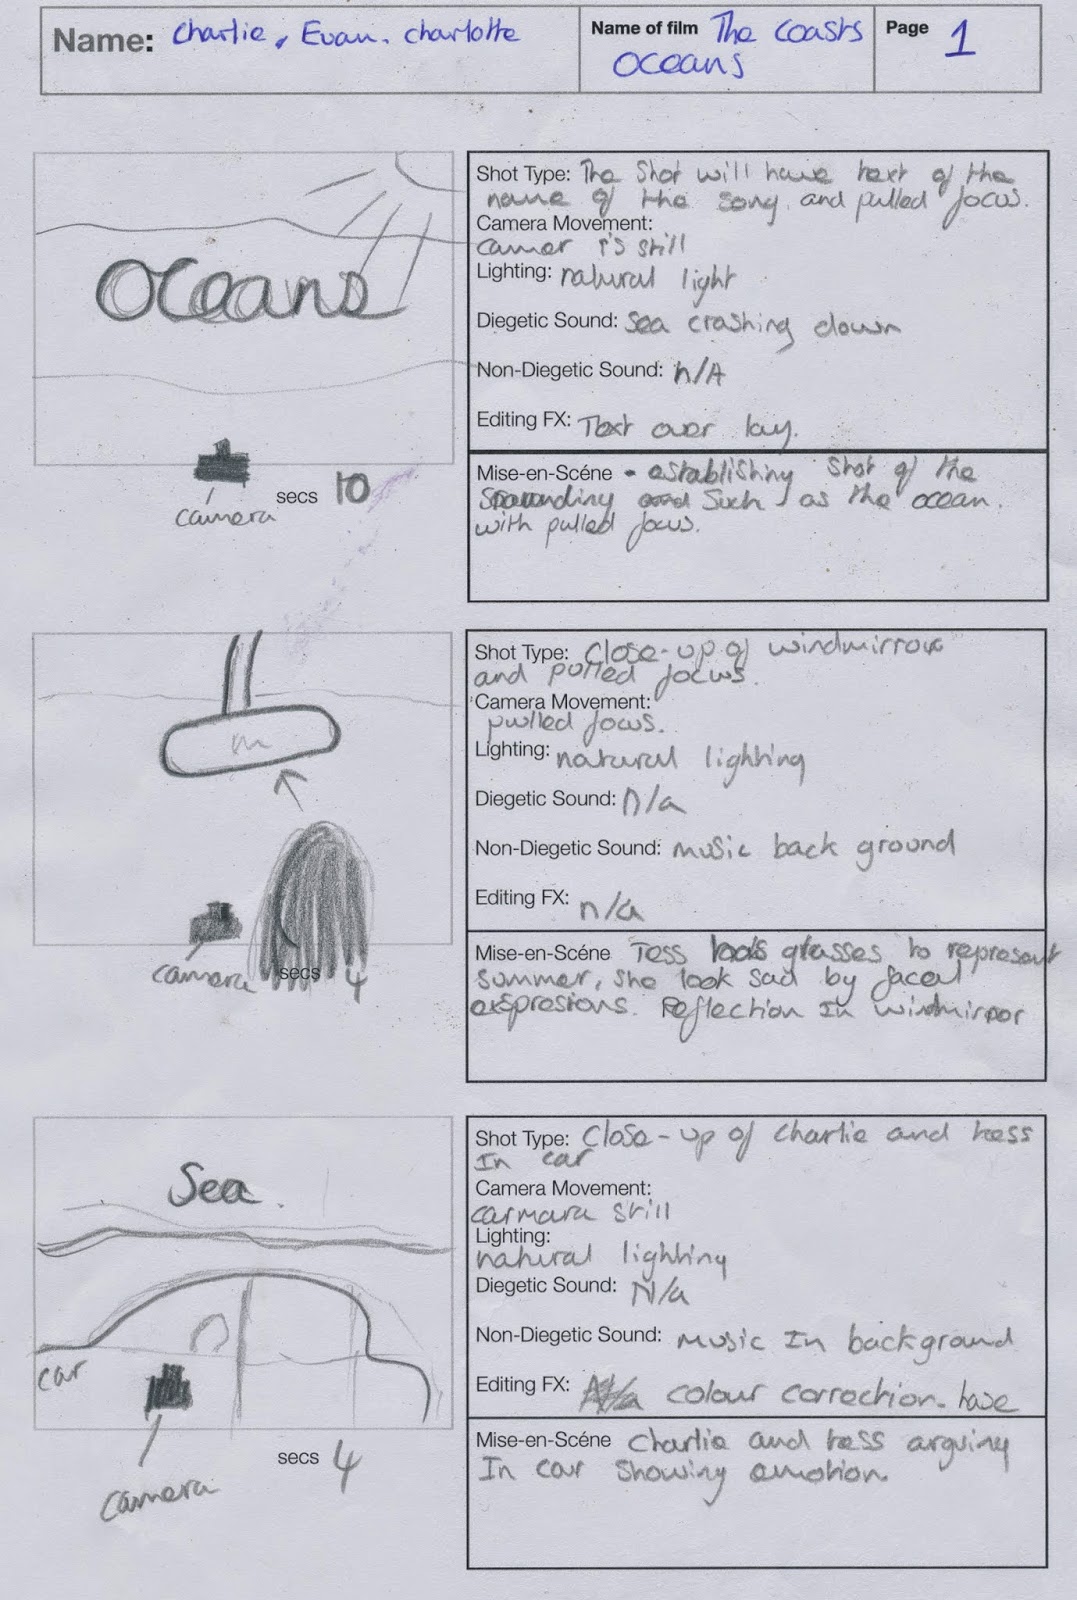 Name: Charlie, Evan. charlotte
Name of film The coasts
oceans
Page 1
Oceans
camera
secs 10
Shot Type: The shot will have text of the
name of the song. and pulled focus.
Camera Movement:
camer is still
Lighting: natural light
Diegetic Sound: sea crashing down
Non-Diegetic Sound: n/A
Editing FX: Text over lay.
Mise-en-Scéne - establishing shot of the
such as the ocean.
with pulled focus.
camera
secs 4
Shot Type: Close-up of windmirror
and pulled focus.
Camera Movement:
pulled focus.
Lighting: natural lighting
Diegetic Sound: n/a
Non-Diegetic Sound: music back ground
Editing FX: n/a
Mise-en-Scéne Tess glasses to represent
summer, she look sad by facel
expresions. Reflection In windmirror
Sea.
car
camera
secs 4
Shot Type: Close-up of Charlie and tess
In car
Camera Movement:
carmara still
Lighting:
natural lighting
Diegetic Sound: N/a
Non-Diegetic Sound: music In background
Editing FX: N/a colour correction.
Mise-en-Scéne Charlie and tess arguing
In car showing emotion.